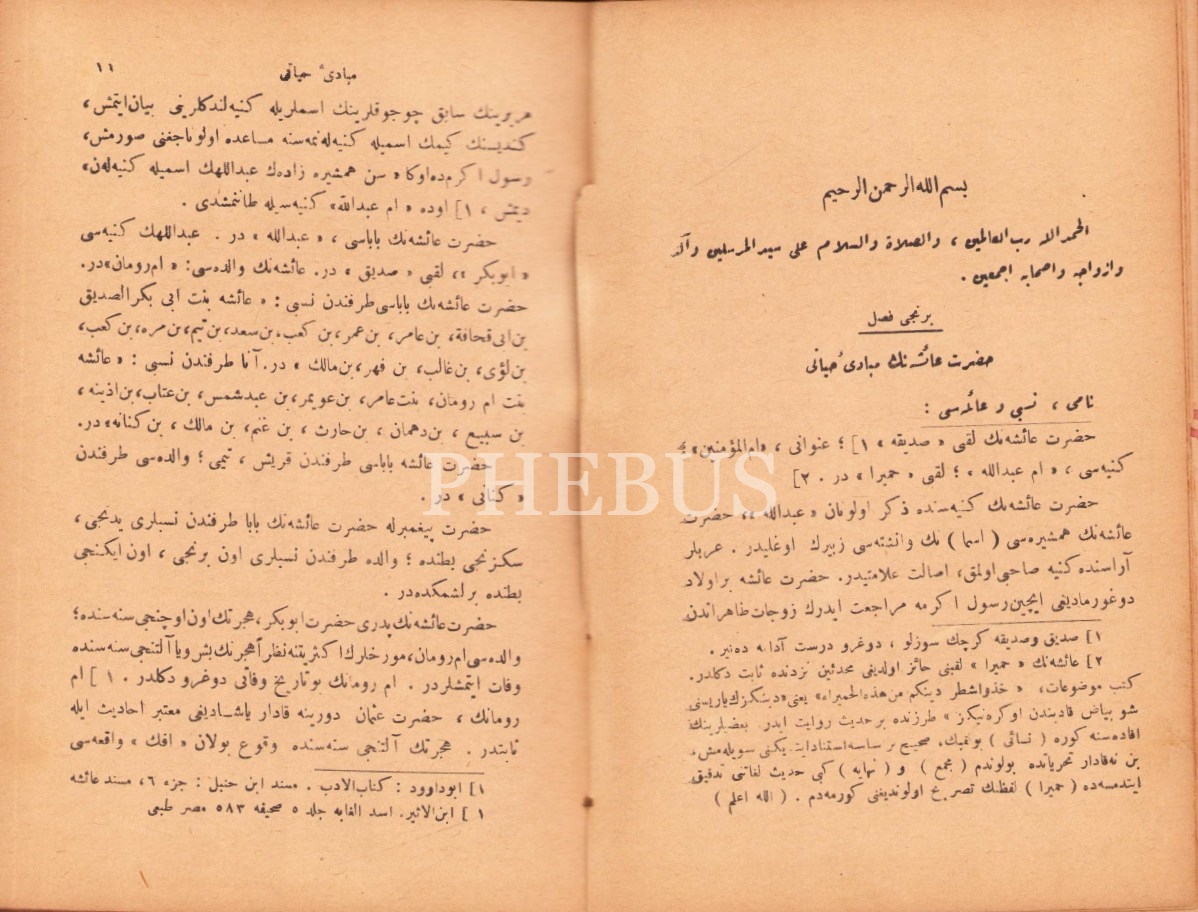 بسم الله الرحمن الرحيم
الحمد الله رب العالمين ، والصلاة والسلام على سيد المرسلين وآله
وازواجه واصحابه اجمعين .
برنجى فصل
حضرت عائشه نك مبادئ حياتى
نامى ، نسبى و عائله سى :
حضرت عائشه نك لقبى « صديقه » ١] ؛ عنوانى ، «ام المؤمنين» ؛
كنيه سى ، « ام عبدالله » ؛ لقبى « حميرا » در . ٢]
حضرت عائشه نك كنيه سنده ذكر اولونان « عبدالله » ، حضرت
عائشه نك همشيره سى ( اسما ) نك وانشته سى زبيرك اوغليدر . عربلر
آراسنده كنيه صاحبى اولمق، اصالت علامتيدر. حضرت عائشه براولاد
دوغورماديغى ايچين رسول اكرمه مراجعت ايدرك زوجات طاهراتدن
١] صديق وصديقه كرچك سوزلو ، دوغرو درست آدامه ده نير .
٢] عائشه نك « حميرا » لقبنى حائز اولديغى محدثين نزدنده ثابت دكلدر.
كتب موضوعات، « خذوا شطر دينكم من هذه الحميراء» يعنى «دينكزك ياريسنى
شو بياض قاديندن اوكره نيكز » طرزنده بر حديث روايت ايدر. بعضيلرينك
افاده سنه كوره ( نسائى ) بونميك، صحيح بر اساسه استناد ايتديكنى سويله مش،
بن نه قادار تحرياتده بولوندم ( مجمع ) و ( نهايه ) كبى حديث لغاتنى تدقيق
ايتدمسه ده ( حميرا ) لفظنك تصريح اولونديغنى كورمه دم . ( الله اعلم )
مبادئ حياتى ١١
هربرينك سابق چوجوقلرينك اسملريله كنيه لندكلرينى بيان ايتمش ،
كنديسنك كيمك اسميله كنيه لنمه سنه مساعده اولوناجغنى صورمش،
رسول اكرم ده اوكا « سن همشيره زاده ك عبداللهك اسميله كنيه لن»
ديمش ، ١] اوده « ام عبدالله» كنيه سيله طانتمشدى .
حضرت عائشه نك باباسى ، « عبدالله » در . عبداللهك كنيه سى
« ابوبكر »، لقبى « صديق » در. عائشه نك والده سى: « ام رومان» در.
حضرت عائشه نك باباسى طرفندن نسبى : « عائشه بنت ابى بكر الصديق
بن ابى قحافة، بن عامر، بن عمر، بن كعب، بن سعد، بن تيم، بن مره، بن كعب،
بن لؤى، بن غالب، بن فهر، بن مالك » در. آنا طرفندن نسبى : « عائشه
بنت ام رومان، بنت عامر، بن عويمر، بن عبد شمس، بن عتاب، بن اذينه ،
بن سبيع ، بن دهمان ، بن حارث ، بن غنم، بن مالك ، بن كنانه» در.
حضرت عائشه باباسى طرفندن قريش ، تيمى ؛ والده سى طرفندن
« كنانى » در .
حضرت پيغمبرله حضرت عائشه نك بابا طرفندن نسبلرى يدنجى ،
سكزنجى بطنده ؛ والده طرفندن نسبلرى اون برنجى ، اون ايكنجى
بطنده برلشمكده در .
حضرت عائشه نك پدرى حضرت ابوبكر، هجرتك اون اوچنجى سنه سنده؛
والده سى ام رومان، مورخلرك اكثريتنه نظراً هجرتك بش ويا آلتنجى سنه سنده
وفات ايتمشلردر . ام رومانك بو تاريخ وفاتى دوغرو دكلدر . ١] ام
رومانك ، حضرت عثمان دورينه قادار ياشاديغى معتبر احاديث ايله
ثابتدر . هجرتك آلتنجى سنه سنده وقوع بولان « افك » واقعه سى
١] ابوداوود : كتاب الادب . مسند ابن حنبل : جزء ٦، مسند عائشه
١] ابن الاثير. اسد الغابه جلد ٥ صحيفه ٥٨٣ مصر طبعى
PHEBUS